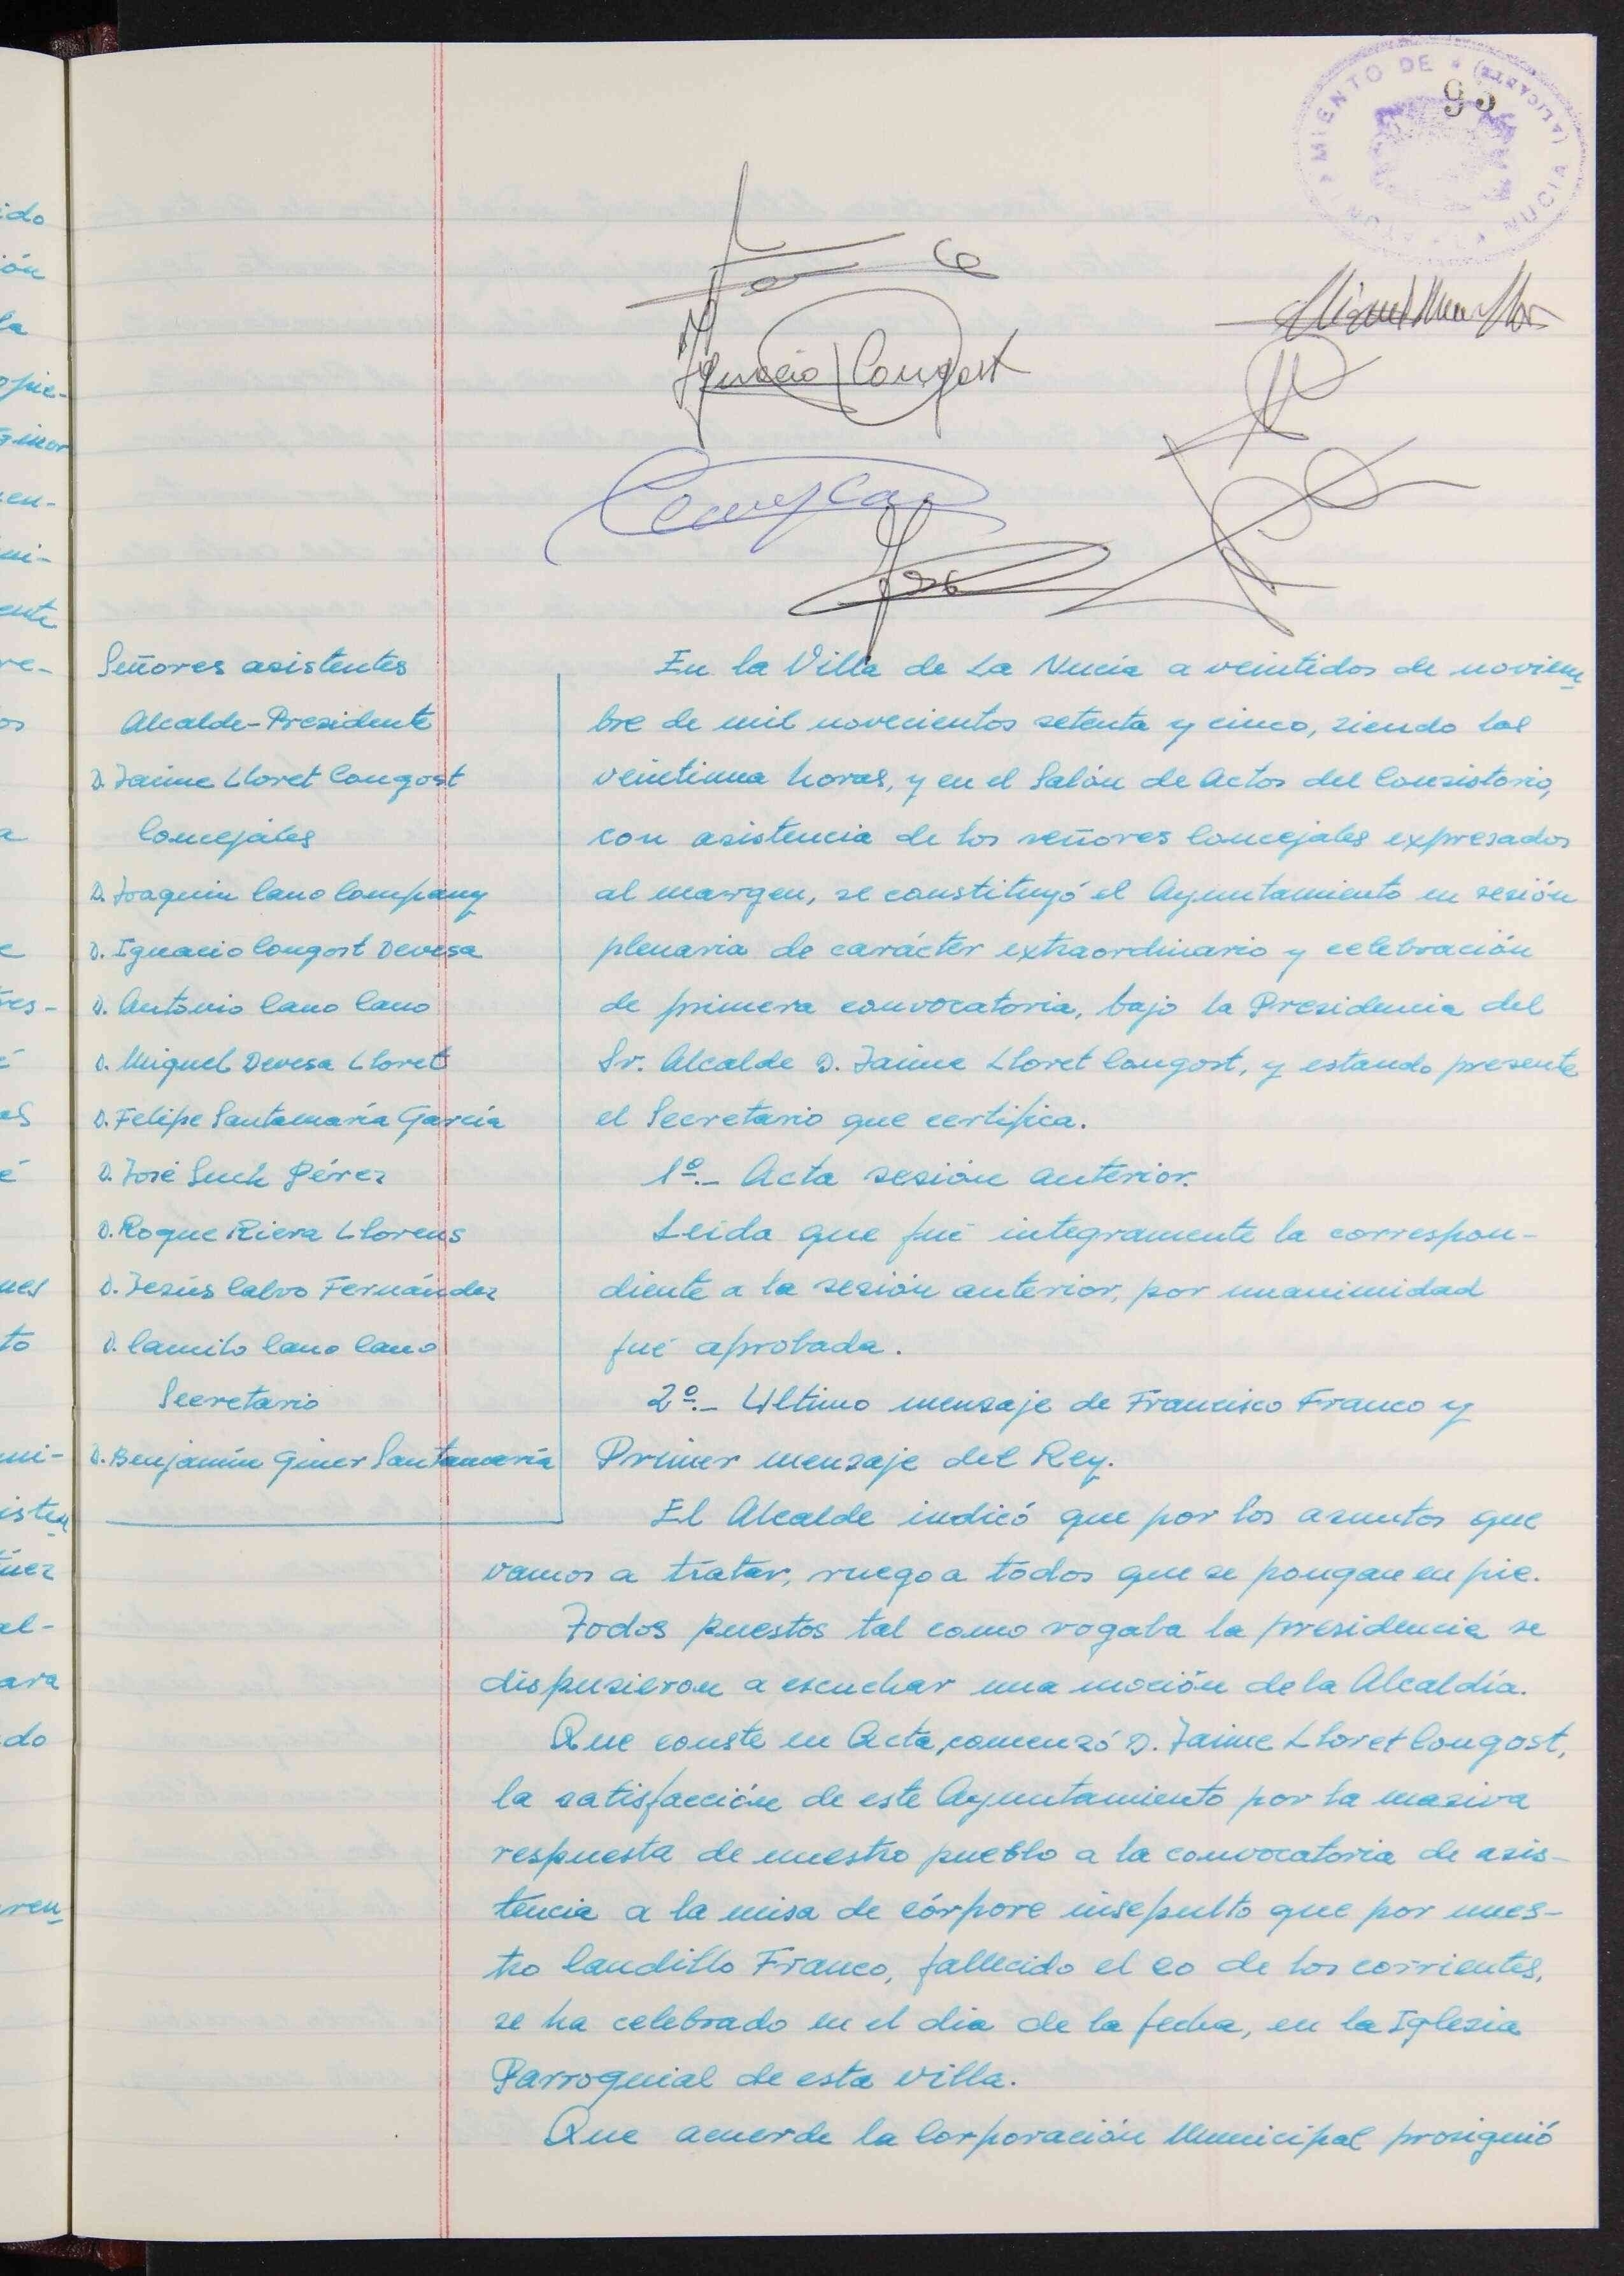 95
AYUNTAMIENTO DE LA NUCIA (ALICANTE)
Ignacio Congost
José
Señores asistentes
Alcalde-Presidente
D. Jaime Lloret Congost
Concejales
D. Joaquin Cano Company
D. Ignacio Congost Devesa
D. Antonio Cano Cano
D. Miguel Devesa Lloret
D. Felipe Santamaría García
D. José Such Pérez
D. Roque Riera Llorens
D. Jesús Calvo Fernández
D. Camilo Cano Cano
Secretario
D. Benjamín Giner Santamaría
En la Villa de La Nucía a veintidos de noviem
bre de mil novecientos setenta y cinco, siendo las
veintiuna horas, y en el Salón de Actos del Consistorio,
con asistencia de los señores Concejales expresados
al margen, se constituyó el Ayuntamiento en sesión
plenaria de carácter extraordinario y celebración
de primera convocatoria, bajo la Presidencia del
Sr. Alcalde D. Jaime Lloret Congost, y estando presente
el Secretario que certifica.
1º.- Acta sesión anterior.
Leida que fué integramente la correspon-
diente a la sesión anterior, por unanimidad
fué aprobada.
2º.- Ultimo mensaje de Francisco Franco y
Primer mensaje del Rey.
El Alcalde indicó que por los asuntos que
vamos a tratar, ruego a todos que se pongan en pie.
Todos puestos tal como rogaba la presidencia se
dispusieron a escuchar una moción de la Alcaldía.
Que conste en Acta, comenzó D. Jaime Lloret Congost,
la satisfacción de este Ayuntamiento por la masiva
respuesta de nuestro pueblo a la convocatoria de asis-
tencia a la misa de córpore insepulto que por nues-
tro Caudillo Franco, fallecido el 20 de los corrientes,
se ha celebrado en el dia de la fecha, en la Iglesia
Parroquial de esta villa.
Que acuerde la Corporación Municipal prosiguió